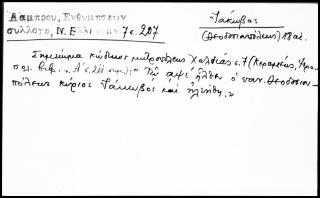 Λάμπρου, Ἐνθυμήσεων
συλλογή, Ν. Ἑλληνομν 7 σ. 207
Ἰάκωβος
(Θεοδοσιουπόλεως) 18 αἰ.
Σημείωμα κώδικος μητροπόλεως Χαλδίας σ. 7 (Κεραμέως,
σ. 211 "Τῷ αψ ἦλθεν ὁ παν. Θεοδοσιου-
πόλεως κύριος Ἰάκωβος καὶ